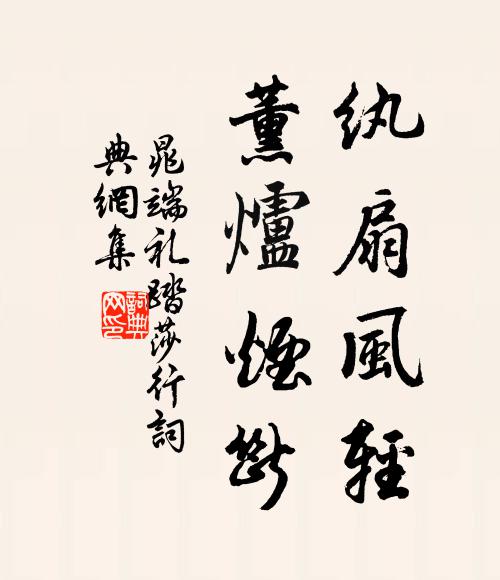 紈扇風輕
薰爐煙斷
晁端礼踏莎行詞
典網集
詞典網印